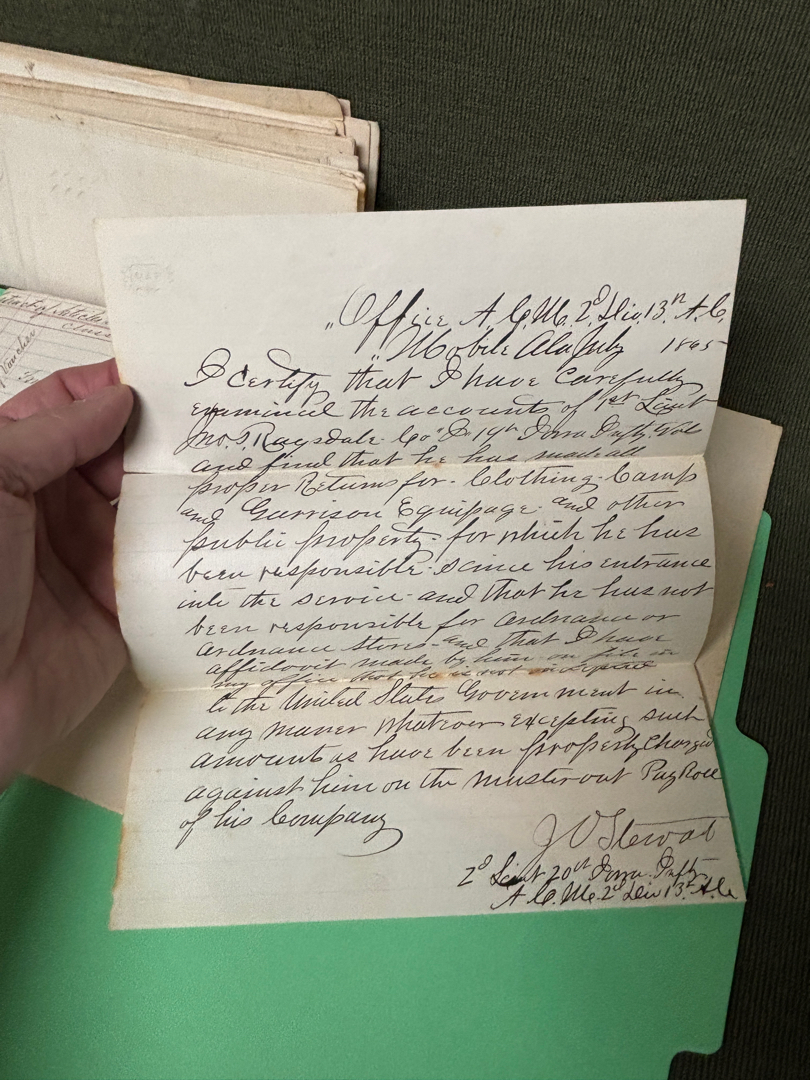 "Office A.C.M. 2d Div. 13th A.C.
"Mobile Ala July 1865
I certify that I have carefully
examined the accounts of 1st Lieut
Jno. S. Ragsdale Co "D" 19th Iowa Infty. Vol
and find that he has made all
proper Returns for Clothing Camp
and Garrison Equipage and other
public property for which he has
been responsible since his entrance
into the service and that he has not
been responsible for Ordnance or
Ordnance Stores and that I have
affidavit made by him on file in
my office that he is not indebted
to the United States Government in
any maner whatever excepting such
amounts as have been property Charged
against him on the muster out Pay Roll
of his Company
J V Stewart
2d Lieut 20th Iowa Infty
A.C.M. 2d Div 13th A.C.
Clothing